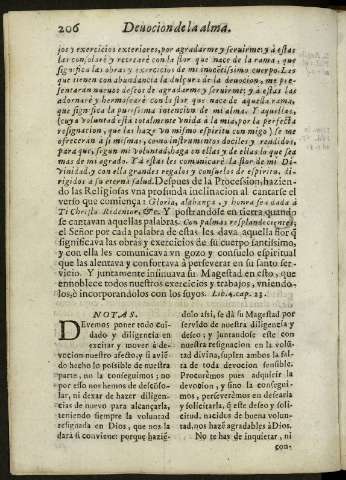 206 Devocion de la alma.
jos y exercicios exteriores, por agradarme y servirme; y à estas
las consolaré y recrearé con la flor que nace de la rama, que
significa las obras y exercicios de mi inocẽtissimo cuerpo. Las
que tienen con abundancia la dulçura de la devocion, me pre-
sentaràn nuevos deseos de agradarme y servirme; y à estas las
adornaré y hermosearé con la flor que nace de aquella rama,
que significa la purissima intencion de mi alma. Y aquellas,
(cuya voluntad està totalmente vnida à la mia, por la perfecta
resignacion, que las haze vn mismo espiritu con migo) se me
ofreceràn à si mismas, como instrumentos dociles y rendidos,
para que, segun mi voluntad, haga en ellas y de ellas lo que sea
mas de mi agrado. Y à estas les comunicaré la flor de mi Di-
vinidad, y con ella grandes regalos y consuelos de espiritu, di-
rigidos à su eterna salud. Despues de la Procession, hazien-
do las Religiosas vna profunda inclinacion al cantarse el
verso que comiença: Gloria, alabança, y honra sea dada à
Ti Christo Redentor, &c. Y postrandose en tierra quando
se cantavan aquellas palabras: Con palmas resplandecientes;
el Señor por cada palabra de estas les dava aquella flor q̃
significava las obras y exercicios de su cuerpo santissimo,
y con ella les comunicava vn gozo y consuelo espiritual
que las alentava y confortava à perseverar en su santo ser-
vicio. Y juntamente insinuava su Magestad en esto, que
ennoblece todos nuestros exercicios y trabajos, vniendo-
los, è incorporandolos con los suyos. Lib. 4. cap. 23.
NOTAS.
DEvemos poner todo cui-
dado y diligencia en
excitar y mover à de-
vocion nuestro afecto, y si avié-
do hecho lo possible de nuestra
parte, no la conseguimos; no
por esso nos hemos de descõso-
lar, ni dexar de hazer diligen-
cias de nuevo para alcançarla,
teniendo siempre la voluntad
resignada en Dios, que nos la
darà si conviene: porque hazié-
dolo assi, se dà su Magestad por
servido de nuestra diligencia y
deseo; y juntandose este con
nuestra resignacion en la volũ-
tad divina, suplen ambos la fal-
ta de toda devocion sensible.
Procuremos pues adquirir la
devocion, y sino la consegui-
mos, perseveremos en desearla
y solicitarla, q̃ este deseo y soli-
citud, nacidos de buena volun-
tad, nos hazé agradables à Dios.
No te has de inquietar, ni
con-